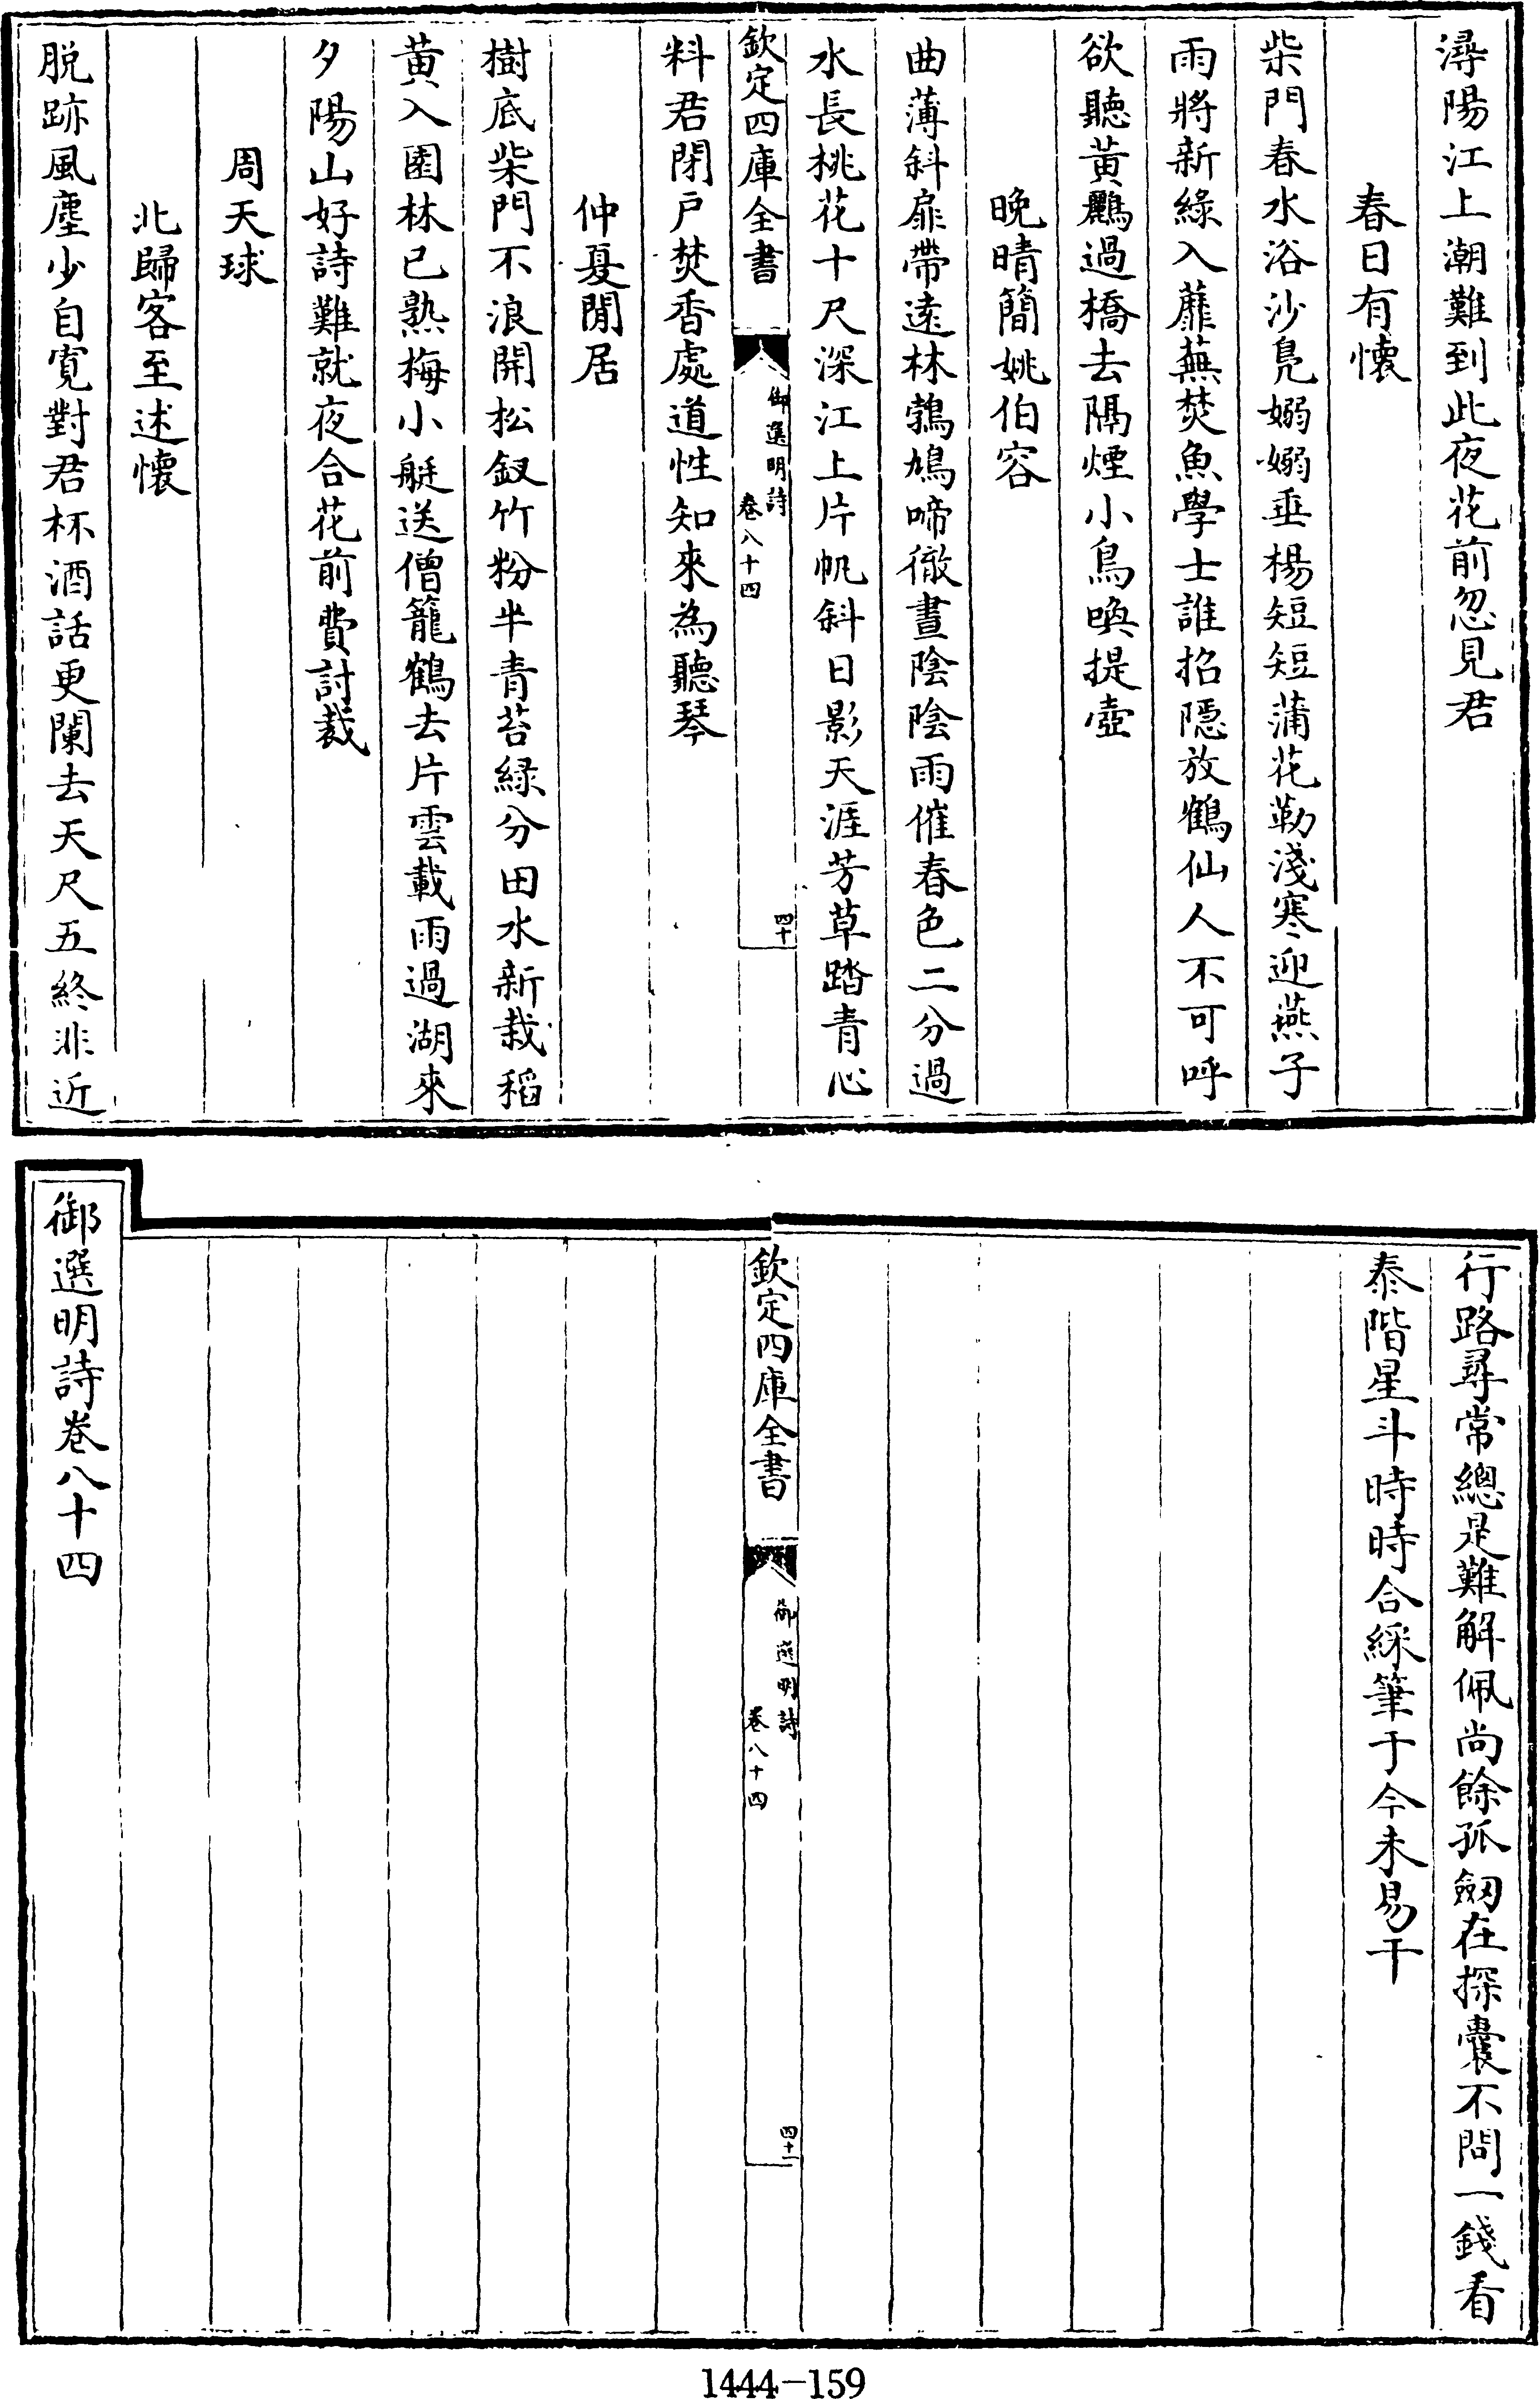 潯陽江上潮難到此夜花前忽見君
春日有懷
柴門春水浴沙鳧嫋嫋垂楊短短蒲花勒淺寒迎燕子
雨將新綠入蘼蕪焚魚學士誰招隱放鶴仙人不可呼
欲聽黃鸝過橋去隔煙小鳥喚提壺
晚晴簡姚伯容
曲薄斜扉帶遠林鵓鳩啼徹晝陰陰雨催春色二分過
水長桃花十尺深江上片帆斜日影天涯芳草踏青心
欽定四庫全書
御選明詩
卷八十四
四十
料君閉戶焚香處道性知來為聽琴
仲夏閒居
樹底柴門不浪開松釵竹粉半青苔綠分田水新栽稻
黃入園林已熟梅小艇送僧籠鶴去片雲載雨過湖來
夕陽山好詩難就夜合花前費討裁
周天球
北歸客至述懷
脫跡風塵少自寬對君杯酒話更闌去天尺五終非近
行路尋常總是難解佩尚餘孤劒在探囊不問一錢看
泰階星斗時時合綵筆于今未易干
欽定四庫全書
御選明詩
卷八十四
四十一
御選明詩卷八十四
1444-159